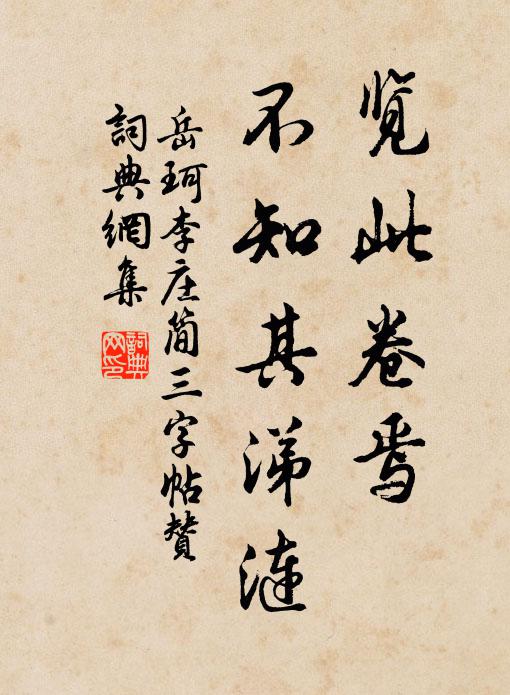 览此卷焉
不知其涕涟
岳珂李庄简三字帖赞
詞典網集
詞典網印